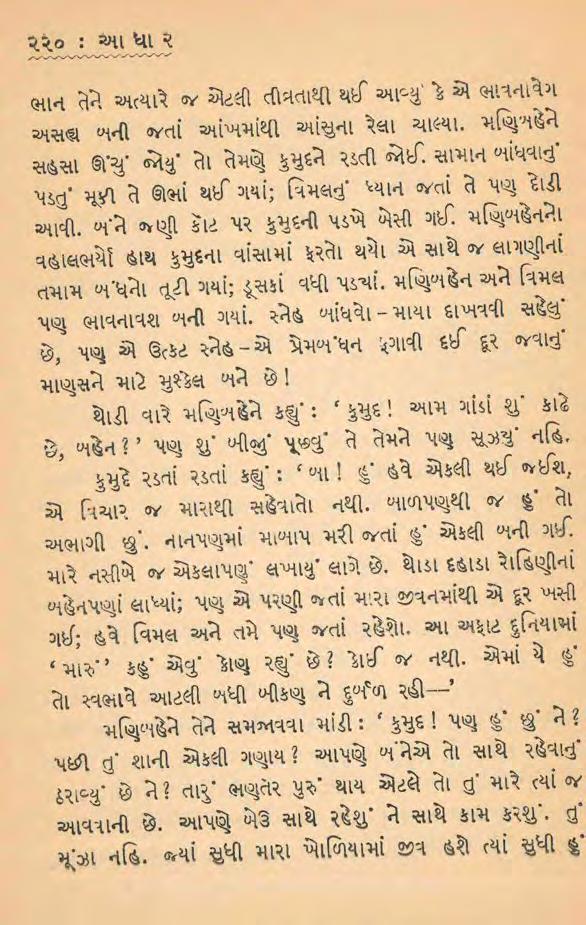 ૨૨૦ : આ ધા ર
ભાન તેને અત્યારે જ એટલી તીવ્રતાથી થઈ આવ્યું કે એ ભાવનાવેગ
અસહ્ય બની જતાં આંખમાંથી આંસુના રેલા ચાલ્યા. મણિબહેને
સહસા ઊંચું જોયું તો તેમણે કુમુદને રડતી જોઈ. સામાન બાંધવાનું
પડતું મૂકી તે ઊભાં થઈ ગયાં; વિમલનું ધ્યાન જતાં તે પણ દોડી
આવી. બંને જણી કૉટ પર કુમુદની પડખે બેસી ગઈ. મણિબહેનનો
વહાલભર્યો હાથ કુમુદના વાંસામાં ફરતો થયો એ સાથે જ લાગણીનાં
તમામ બંધનો તૂટી ગયાં; ડૂસકાં વધી પડ્યાં. મણિબહેન અને વિમલ
પણ ભાવનાવશ બની ગયાં. સ્નેહ બાંધવો – માયા દાખવવી સહેલું
છે, પણ એ ઉત્કટ સ્નેહ – એ પ્રેમબંધન ફગાવી દઈ દૂર જવાનું
માણસને માટે મુશ્કેલ બને છે!
થોડી વારે મણિબહેને કહ્યું : ‘કુમુદ! આમ ગાંડાં શું કાઢે
છે, બહેન?’ પણ શું બીજું પૂછવું તે તેમને પણ સૂઝયું નહિ.
કુમુદે રડતાં રડતાં કહ્યું : ‘બા! હું હવે એકલી થઈ જઈશ,
એ વિચાર જ મારાથી સહેવાતો નથી. બાળપણથી જ હું તો
અભાગી છું. નાનપણમાં માબાપ મરી જતાં હું એકલી બની ગઈ.
મારે નસીબે જ એકલાપણું લખાયું લાગે છે. થોડા દહાડા રોહિણીનાં
બહેનપણાં લાધ્યાં; પણ એ પરણી જતાં મારા જીવનમાંથી એ દૂર ખસી
ગઈ; હવે વિમલ અને તમે પણ જતાં રહેશો. આ અફાટ દુનિયામાં
‘મારું’ કહું એવું કોણ રહ્યું છે? કોઈ જ નથી. એમાં યે હું
તો સ્વભાવે આટલી બધી બીકણ ને દુર્બળ રહી—’
મણિબહેને તેને સમજાવવા માંડી : ‘કુમુદ! પણ હું છું ને?
પછી તું શાની એકલી ગણાય? આપણે બંનેએ તો સાથે રહેવાનું
ઠરાવ્યું છે ને? તારું ભણતર પુરું થાય એટલે તો તું મારે ત્યાં જ
આવવાની છે. આપણે બેઉ સાથે રહેશું ને સાથે કામ કરશું. તું
મૂંઝા નહિ. જ્યાં સુધી મારા ખોળિયામાં જીવ હશે ત્યાં સુધી હું